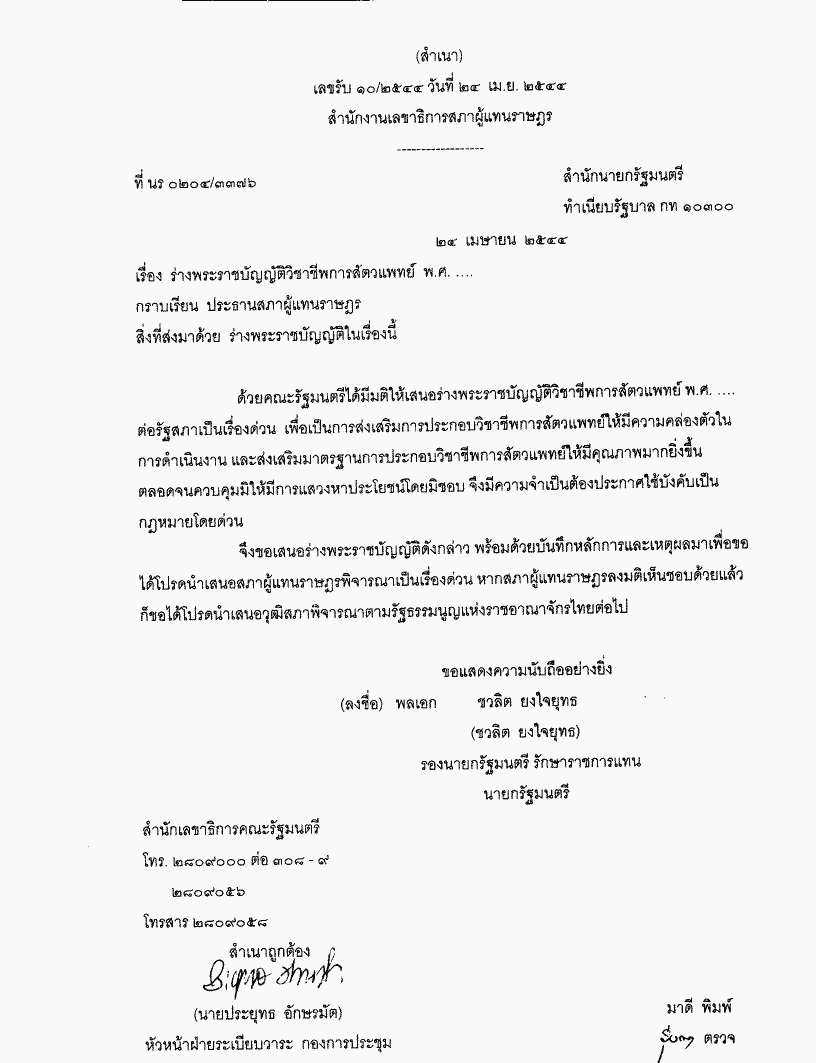 (สำเนา)
เลขรับ ๑๐/๒๕๔๔ วันที่ ๒๔ เม.ย. ๒๕๔๔
สำนักงานเลขาธิการสภาผู้แทนราษฎร
------------------
ที่ นร ๐๒๐๔/๓๓๗๖
สำนักนายกรัฐมนตรี
ทำเนียบรัฐบาล กท ๑๐๓๐๐
๒๔ เมษายน ๒๕๔๔
เรื่อง ร่างพระราชบัญญัติวิชาชีพการสัตวแพทย์ พ.ศ. ....
กราบเรียน ประธานสภาผู้แทนราษฎร
สิ่งที่ส่งมาด้วย ร่างพระราชบัญญัติในเรื่องนี้
ด้วยคณะรัฐมนตรีได้มีมติให้เสนอร่างพระราชบัญญัติวิชาชีพการสัตวแพทย์ พ.ศ. ....
ต่อรัฐสภาเป็นเรื่องด่วน เพื่อเป็นการส่งเสริมการประกอบวิชาชีพการสัตวแพทย์ให้มีความคล่องตัวใน
การดำเนินงาน และส่งเสริมมาตรฐานการประกอบวิชาชีพการสัตวแพทย์ให้มีคุณภาพมากยิ่งขึ้น
ตลอดจนควบคุมมิให้มีการแสวงหาประโยชน์โดยมิชอบ จึงมีความจำเป็นต้องประกาศใช้บังคับเป็น
กฎหมายโดยด่วน
จึงขอเสนอร่างพระราชบัญญัติดังกล่าว พร้อมด้วยบันทึกหลักการและเหตุผลมาเพื่อขอ
ได้โปรดนำเสนอสภาผู้แทนราษฎรพิจารณาเป็นเรื่องด่วน หากสภาผู้แทนราษฎรลงมติเห็นชอบด้วยแล้ว
ก็ขอได้โปรดนำเสนอวุฒิสภาพิจารณาตามรัฐธรรมนูญแห่งราชอาณาจักรไทยต่อไป
ขอแสดงความนับถืออย่างยิ่ง
(ลงชื่อ) พลเอก ชวลิต ยงใจยุทธ
(ชวลิต ยงใจยุทธ)
รองนายกรัฐมนตรี รักษาราชการแทน
นายกรัฐมนตรี
สำนักเลขาธิการคณะรัฐมนตรี
โทร. ๒๘๐๙๐๐๐ ต่อ ๓๐๘ - ๙
๒๘๐๙๐๕๖
โทรสาร ๒๘๐๙๐๕๘
สำเนาถูกต้อง
(นายประยุทธ อักษรมัต)
หัวหน้าฝ่ายระเบียบวาระ กองการประชุม
มาดี พิมพ์
ตรวจ